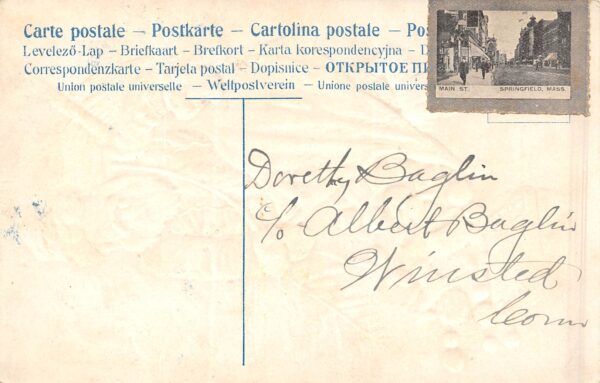 Carte postale — Postkarte — Cartolina postale — Pos
Levelező-Lap — Briefkaart — Brefkort — Karta korespondencyjna — D
Correspondenzkarte — Tarjeta postal — Dopisnice — ОТКРЫТОЕ ПИ
Union postale universelle — Weltpostverein — Unione postale univers
MAIN ST. SPRINGFIELD, MASS.
Dorothy Baglin
c/o Albert Baglin
Winsted
Conn